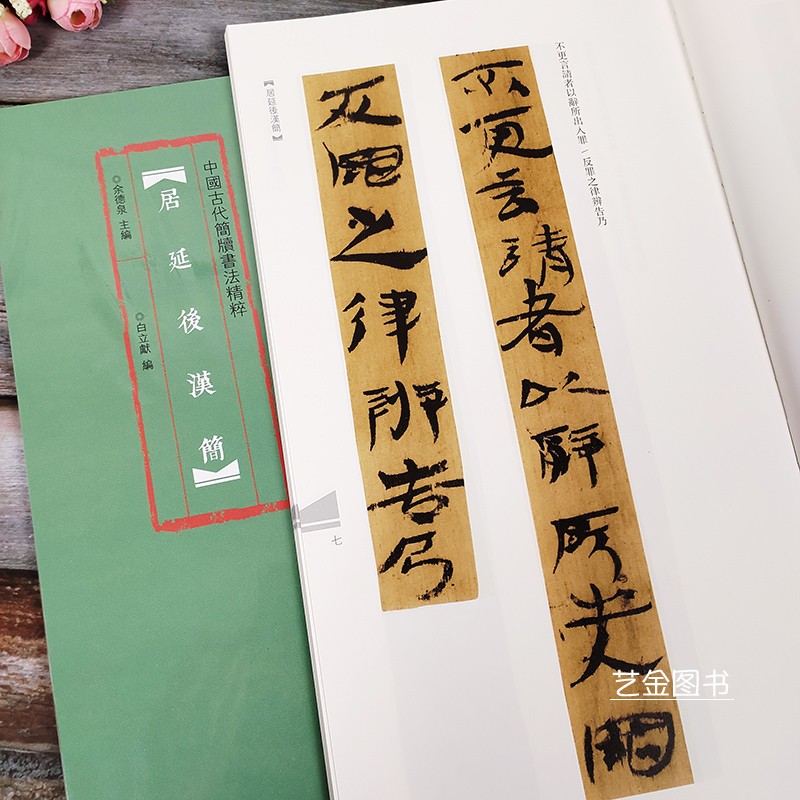 中國古代簡牘書法精粹
【居延後漢簡】
◎余德泉 主編
◎白立獻 編
不更言請者以辭所出入罪 反罪之律辨告乃
不更言請者以辭所出入罪
反罪之律辨告乃
【居延後漢簡】
七
艺金图书